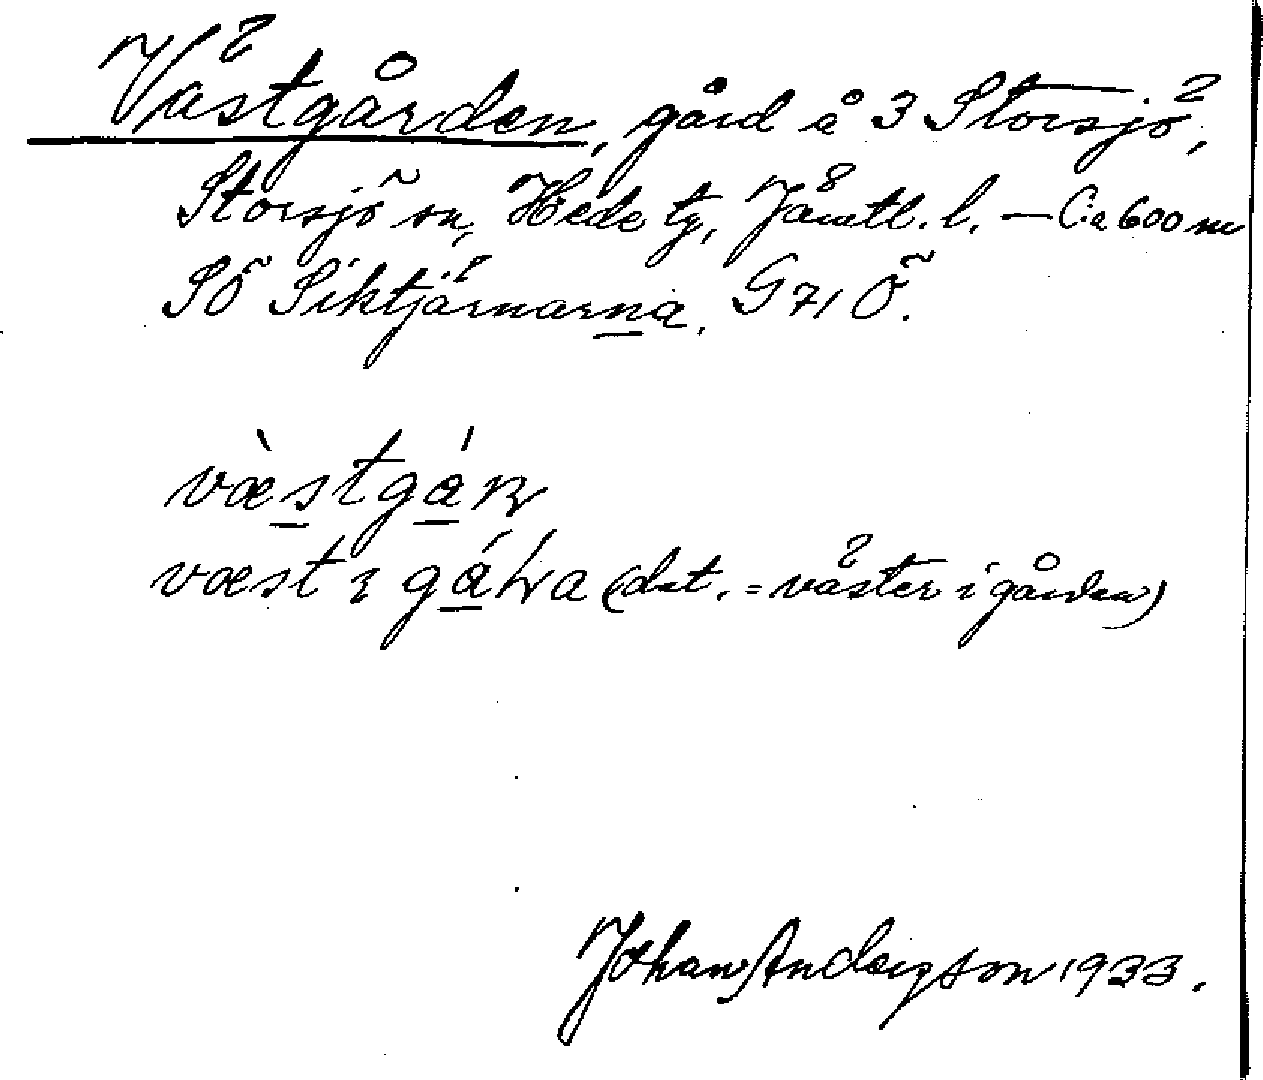 Västgården, gård å 3 Storsjö,
Storsjö sn, Hede tg, Jämtl. l. — Ca 600 m
SÖ Siktjärnarna. G 71 Ö.
væst i (dat. = väster i gården)
Johan Andersson 1933.